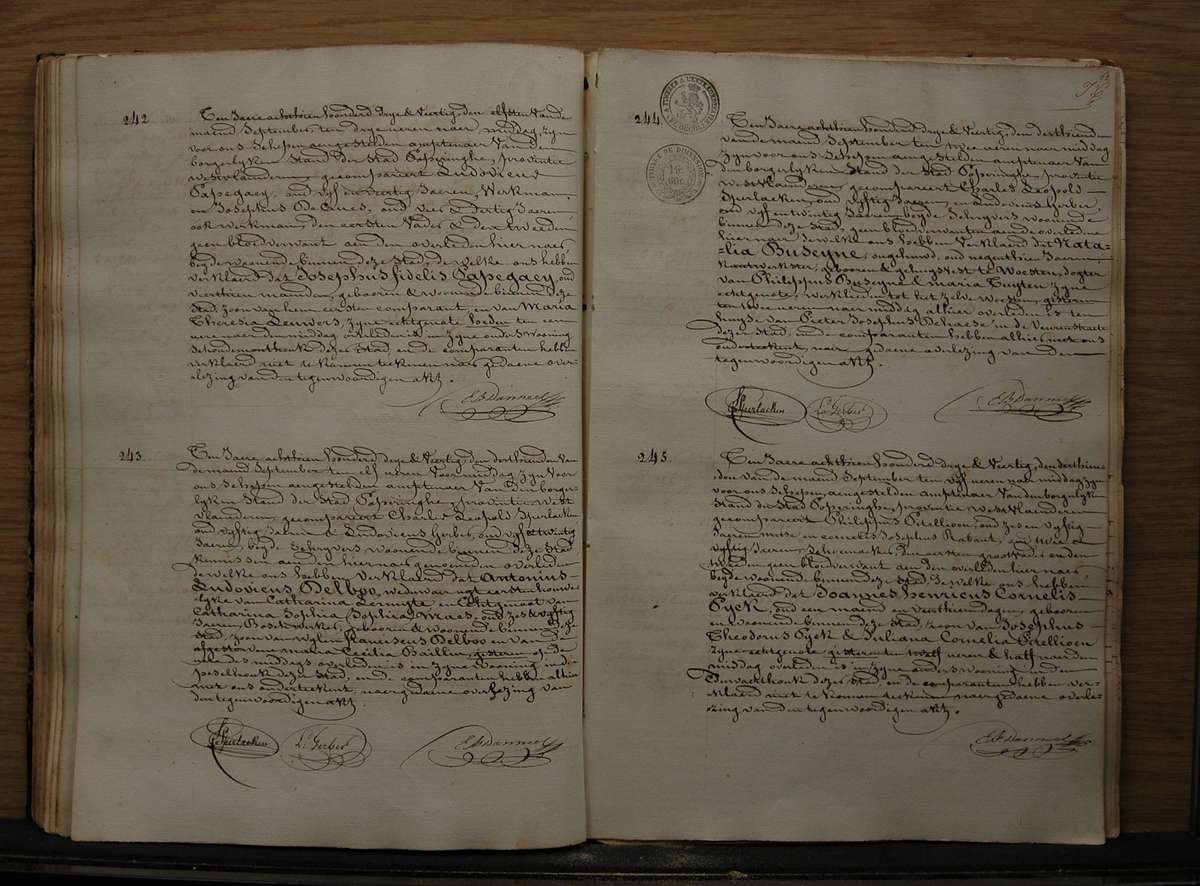 242
Ten Jaere achthien honderd drye & Veertig, den elfsten Van de
maend September, ten drye ueren naer middag, zyn
voor ons Schepen aengestelden amptenaer Van den
borgerlyken Stand der Stad Poperinghe, provintie
westvlanderen, gecompareert Ludovicus
Papegaey, oud Vyf en dertig Jaeren, Werkman,
en Josephus oud Vier & dertig Jaeren,
ook werkman, den eersten Vader & den tweeden
geen bloedverwant aen den overleden hier naer,
beyde woonende binnen deze Stad, de welke ons hebben
verklaerd dat Josephus fidelis Papegaey, oud
veerthien maenden, gebooren & woonende binnen deze
Stad, zoon van hem eersten comparant, en van Maria
Theresia Leuwers, zyne echtgenote, heden ten een
uere naer middag overleden is in zyne ouders wooning
Schoudemonthoek dezer Stad, en de comparanten hebben
verklaerd niet te konnen teekenen naer gedaene over-
lezing van den tegenwoordigen akt.
243.
Ten Jaere achthien honderd drye & Veertig, den derthienden Van
de maend September ten elf uren Voor middag, zyn Voor
ons Schepen aengestelden amptenaer Van den borger-
lyken Stand der Stad Poperinghe provintie West
vlanderen, gecompareert Charles Leopold Spurlacken
oud vyftig Jaeren & Ludovicus Gerber, oud vyf & twintig
Jaeren, beyde Schryvers woonende binnen deze Stad
kennissen aen den hiernaer genoemden overleden
de welke ons hebben Verklaerd dat Antonius
Ludovicus Delboo, weduwaer uyt eerste houwe-
lyke van Catharina en Echtgenoot van
Catharina Sophia Josephina Maes, oud zes & vyftig
Jaeren, gebooren & woonende binnen deze
Stad, zoon van wylen Franciscus Delboo en van de
afgestorven maria Cecilia Baillieu, gisteren op de
middags overleden is in zyne wooning in de
peselhoek dezer Stad, en de comparanten hebben alhier
met ons onderteekent, naer gedaene overlezing van
den tegenwoordigen akt.
Spurlacken L. Gerber
244.
Ten Jaere achthien honderd drye & Veertig, den derthienden
van de maend September ten twee ueren naer middag
zyn voor ons Schepen aengestelden amptenaer Van
den borgerlyken Stand der Stad Poperinghe, provintie
WestVlanderen, gecompareert Charles Leopold
Spurlacken, oud vyftig Jaeren, en Ludovicus Gerber,
oud vyf en twintig Jaeren, beyde Schryvers woonende
binnen deze Stad, geen bloedverwanten aen de overledene
hier naer, de welke ons hebben Verklaerd dat Nata-
-lia Buseyne, ongehuwd, oud negenthien Jaeren,
Kantwerkster, gebooren & gehuysvest te Woesten, dogter
van Philippus Buseyne & maria Tuyten zyne
echtgenote, werklieden tot het zelve woesten, gisteren
ten twee ueren naer middag alhier overleden is ten
huyse van Pieter Josephus Dehaese in de Veurenstraete
dezer Stad, en de comparanten hebben alhier met ons
onderteekent, naer gedaene overlezing van den
tegenwoordigen akt.
Spurlacken L. Gerber
245.
Ten Jaere achthien honderd drye & Veertig, den derthien-
den van de maend September ten vyf ueren naer middag zyn
voor ons Schepen, aengestelden amptenaer Van den borgerlyken
Stand der Stad Poperinghe, provintie WestVlanderen
gecompareert Philippus Petellioen, oud zes en vyftig
Jaeren en Cornelis Josephus Rabaut, oud twee &
vyftig Jaeren, Schoenmaker, den eersten grootvader en den
tweeden geen bloedverwant aen den overleden hier naer,
beyde woonende binnen deze Stad, de welke ons hebben
verklaerd dat Joannes Henricus Cornelis
Pyck, oud een maend en veerthien dagen, gebooren
en woonende binnen deze Stad, zoon van Josephus
Theodorus Pyck & Juliana Cornelia Petellioen
zyne echtgenote, gisteren ten twalf ueren & half naer den
middag overleden is in zyne ouders wooning in den
dezer Stad en de comparanten hebben ver-
klaerd niet te konnen teekenen naer gedaene overle-
zing van den tegenwoordigen akt.